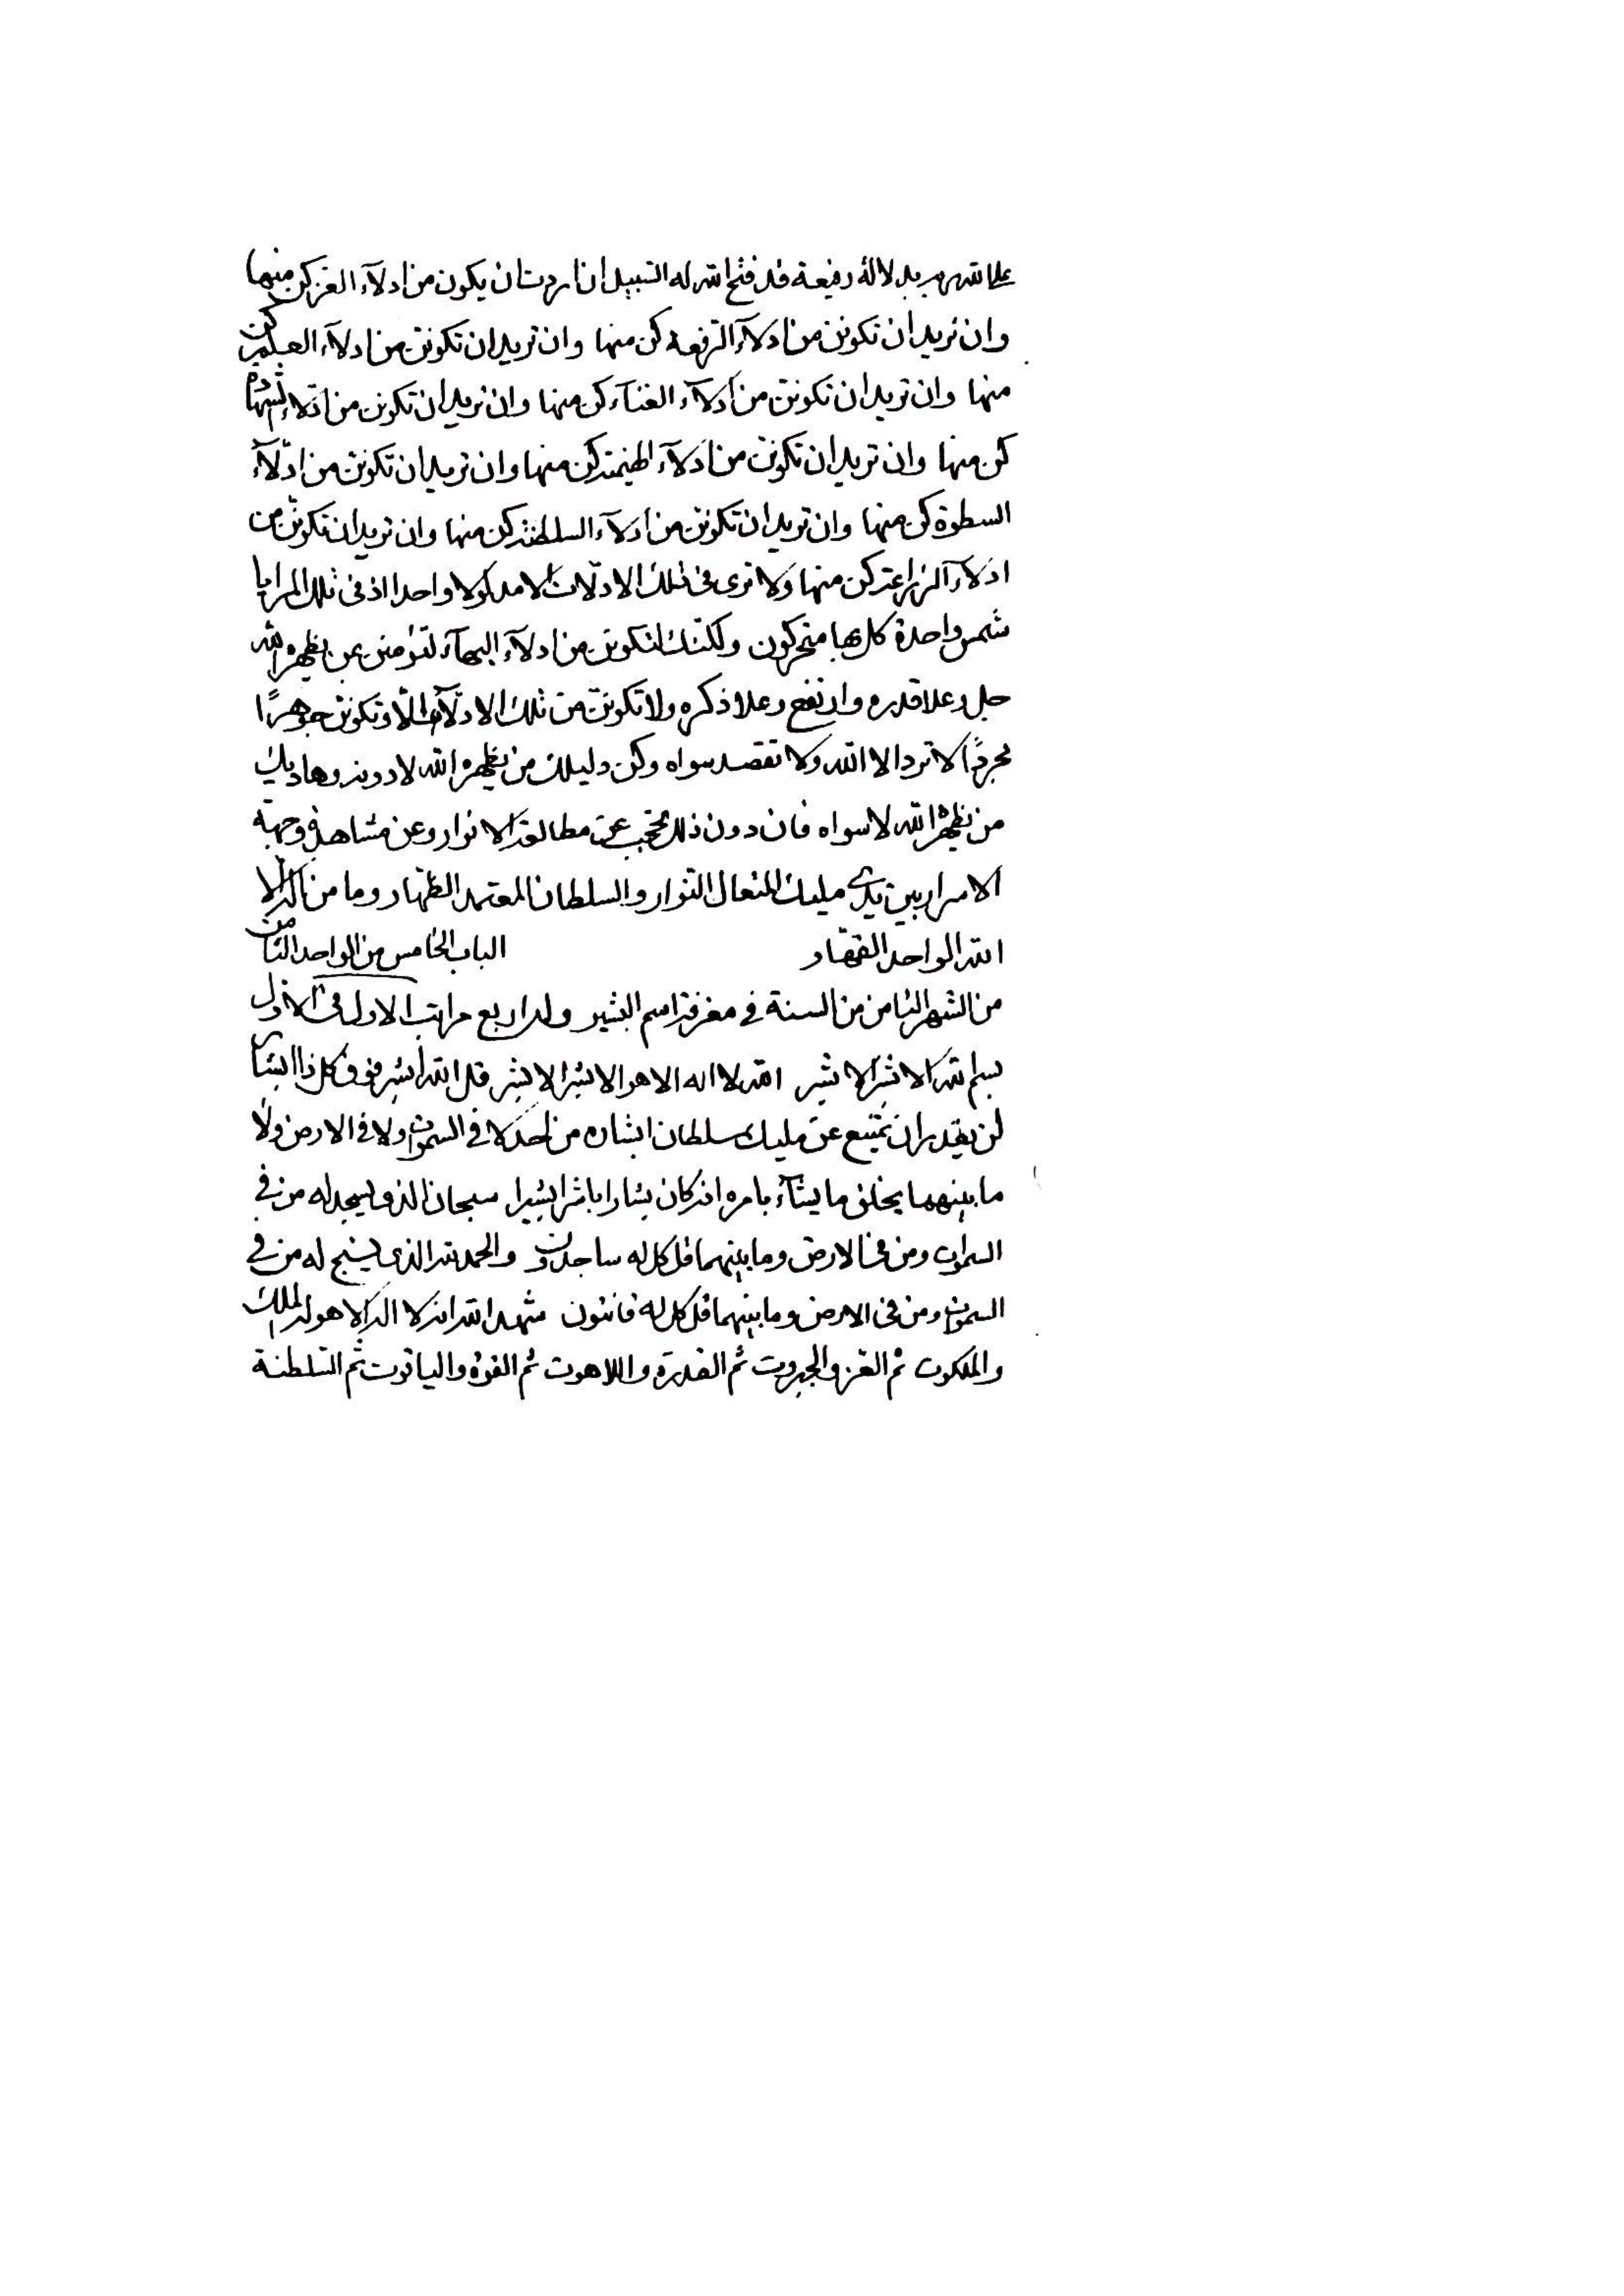 على الله ربه بدلالة رفيعة قد فتح الله له السبيل ان اردت ان يكون من ادلآء العز كن منها
وان تريد ان تكونن من ادلآء الرفعة كن منها وان تريد ان تكونن من ادلآء العلم كن
منها وان تريد ان تكونن من ادلآء الغنآء كن منها وان تريد ان تكونن من ادلاء الشهادة
كن منها وان تريد ان تكونن من ادلآء الهيمنة كن منها وان تريد ان تكونن من ادلآء
السطوة كن منها وان تريد ان تكونن من ادلآء السلطنة كن منها وان تريد ان تكونن من
ادلآء كن منها ولا ترى فى تلك الادلات الا مدلولا واحدا اذ فى تلك المرايا
شمس واحدة كل بها متحركون ولكنك لتكونن من ادلآء البهآء لتؤمنن بمن يظهره الله
جل وعلا قدره وارتفع وعلا ذكره ولا تكونن من تلك الادلآت الا وتكونن جوهرًا
مجردًا لا ترد الا الله ولا تقصد سواه وكن دليلك من يظهره الله لا دونه وهاديك
من يظهره الله لا سواه فان دون ذلك تحتجب عن مطالعة الانوار وعن مشاهدة وجهة
الاسرار بين يدى مليك المتعال النوار والسلطان المعتمد الظهار وما من اله الا
الله الواحد القهار الباب الخامس من الواحد الثامن
من الشهر الثامن من السنة في معرفة اسم البشير وله اربع مراتب الاول فى الاول
بسم الله الابشر الابشر الله لا اله الا هو الابشر الابشر قل الله ابشر فوق كل ذا ابشار
لن يقدر ان يمتنع عن مليك سلطان ابشاره من احد لا في السموات ولا في الارض ولا
ما بينهما يخلق ما يشآء بامره انه كان بشارا باشرا بشيرا سبحان الذى يسجد له من في
السموات ومن فى الارض وما بينهما قل كل له ساجدون والحمد لله الذى يسبح له من في
السموات ومن فى الارض وما بينهما قل كل له قانتون شهد الله انه لا اله الا هو له الملك
والملكوت ثم العز والجبروت ثم القدرة واللاهوت ثم القوة والياقوت ثم السلطنة